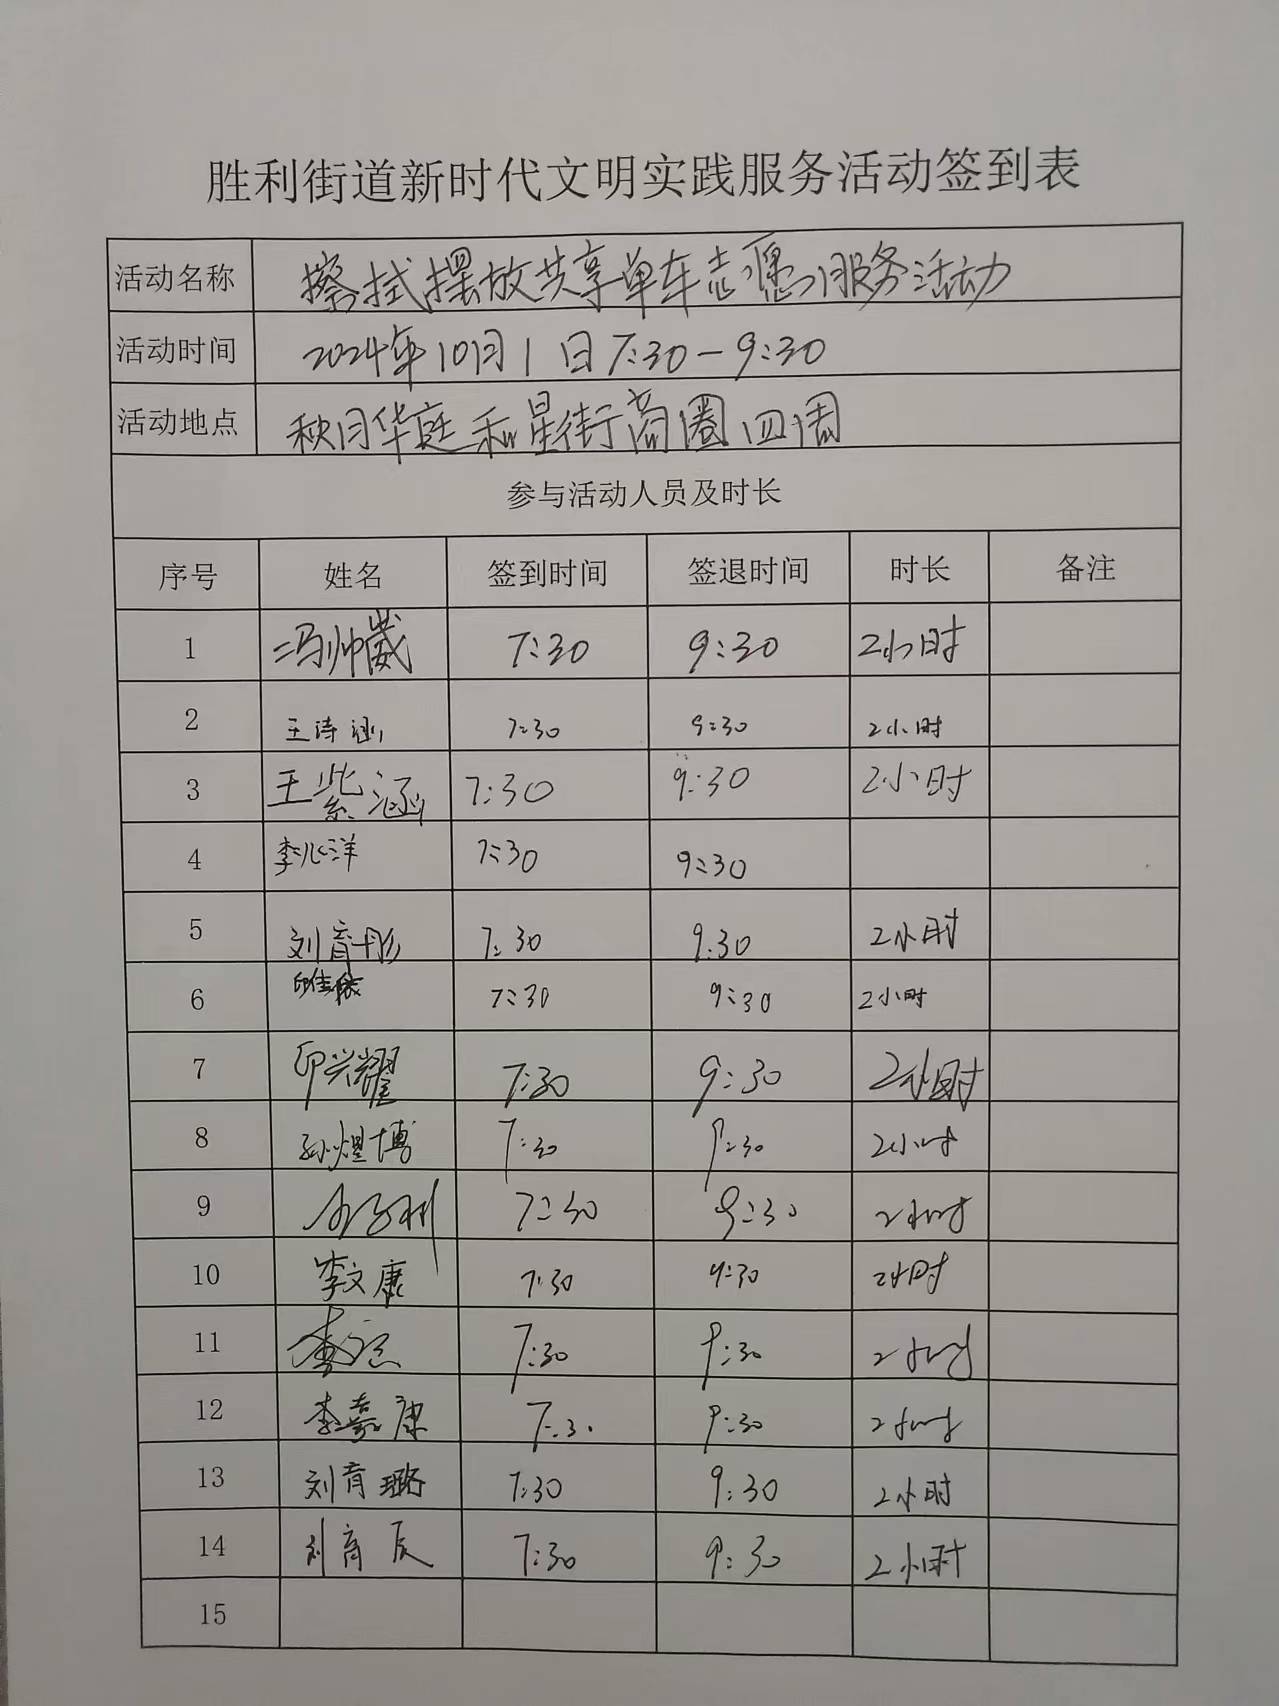 胜利街道新时代文明实践服务活动签到表
活动名称 擦拭摆放共享单车志愿服务活动
活动时间 2024年10月1日7:30-9:30
活动地点 秋月华庭和星街商圈四周
参与活动人员及时长
序号 姓名 签到时间 签退时间 时长 备注
1 冯帅葳 7:30 9:30 2小时
2 王诗涵 7:30 9:30 2小时
3 王紫涵 7:30 9:30 2小时
4 李沁洋 7:30 9:30
5 刘育彤 7:30 9:30 2小时
6 7:30 9:30 2小时
7 印兴耀 7:30 9:30 2小时
8 孙煜博 7:30 9:30 2小时
9 7:30 9:30 2小时
10 李文康 7:30 9:30 2小时
11 7:30 9:30 2小时
12 李嘉康 7:30 9:30 2小时
13 刘育璐 7:30 9:30 2小时
14 刘育辰 7:30 9:30 2小时
15